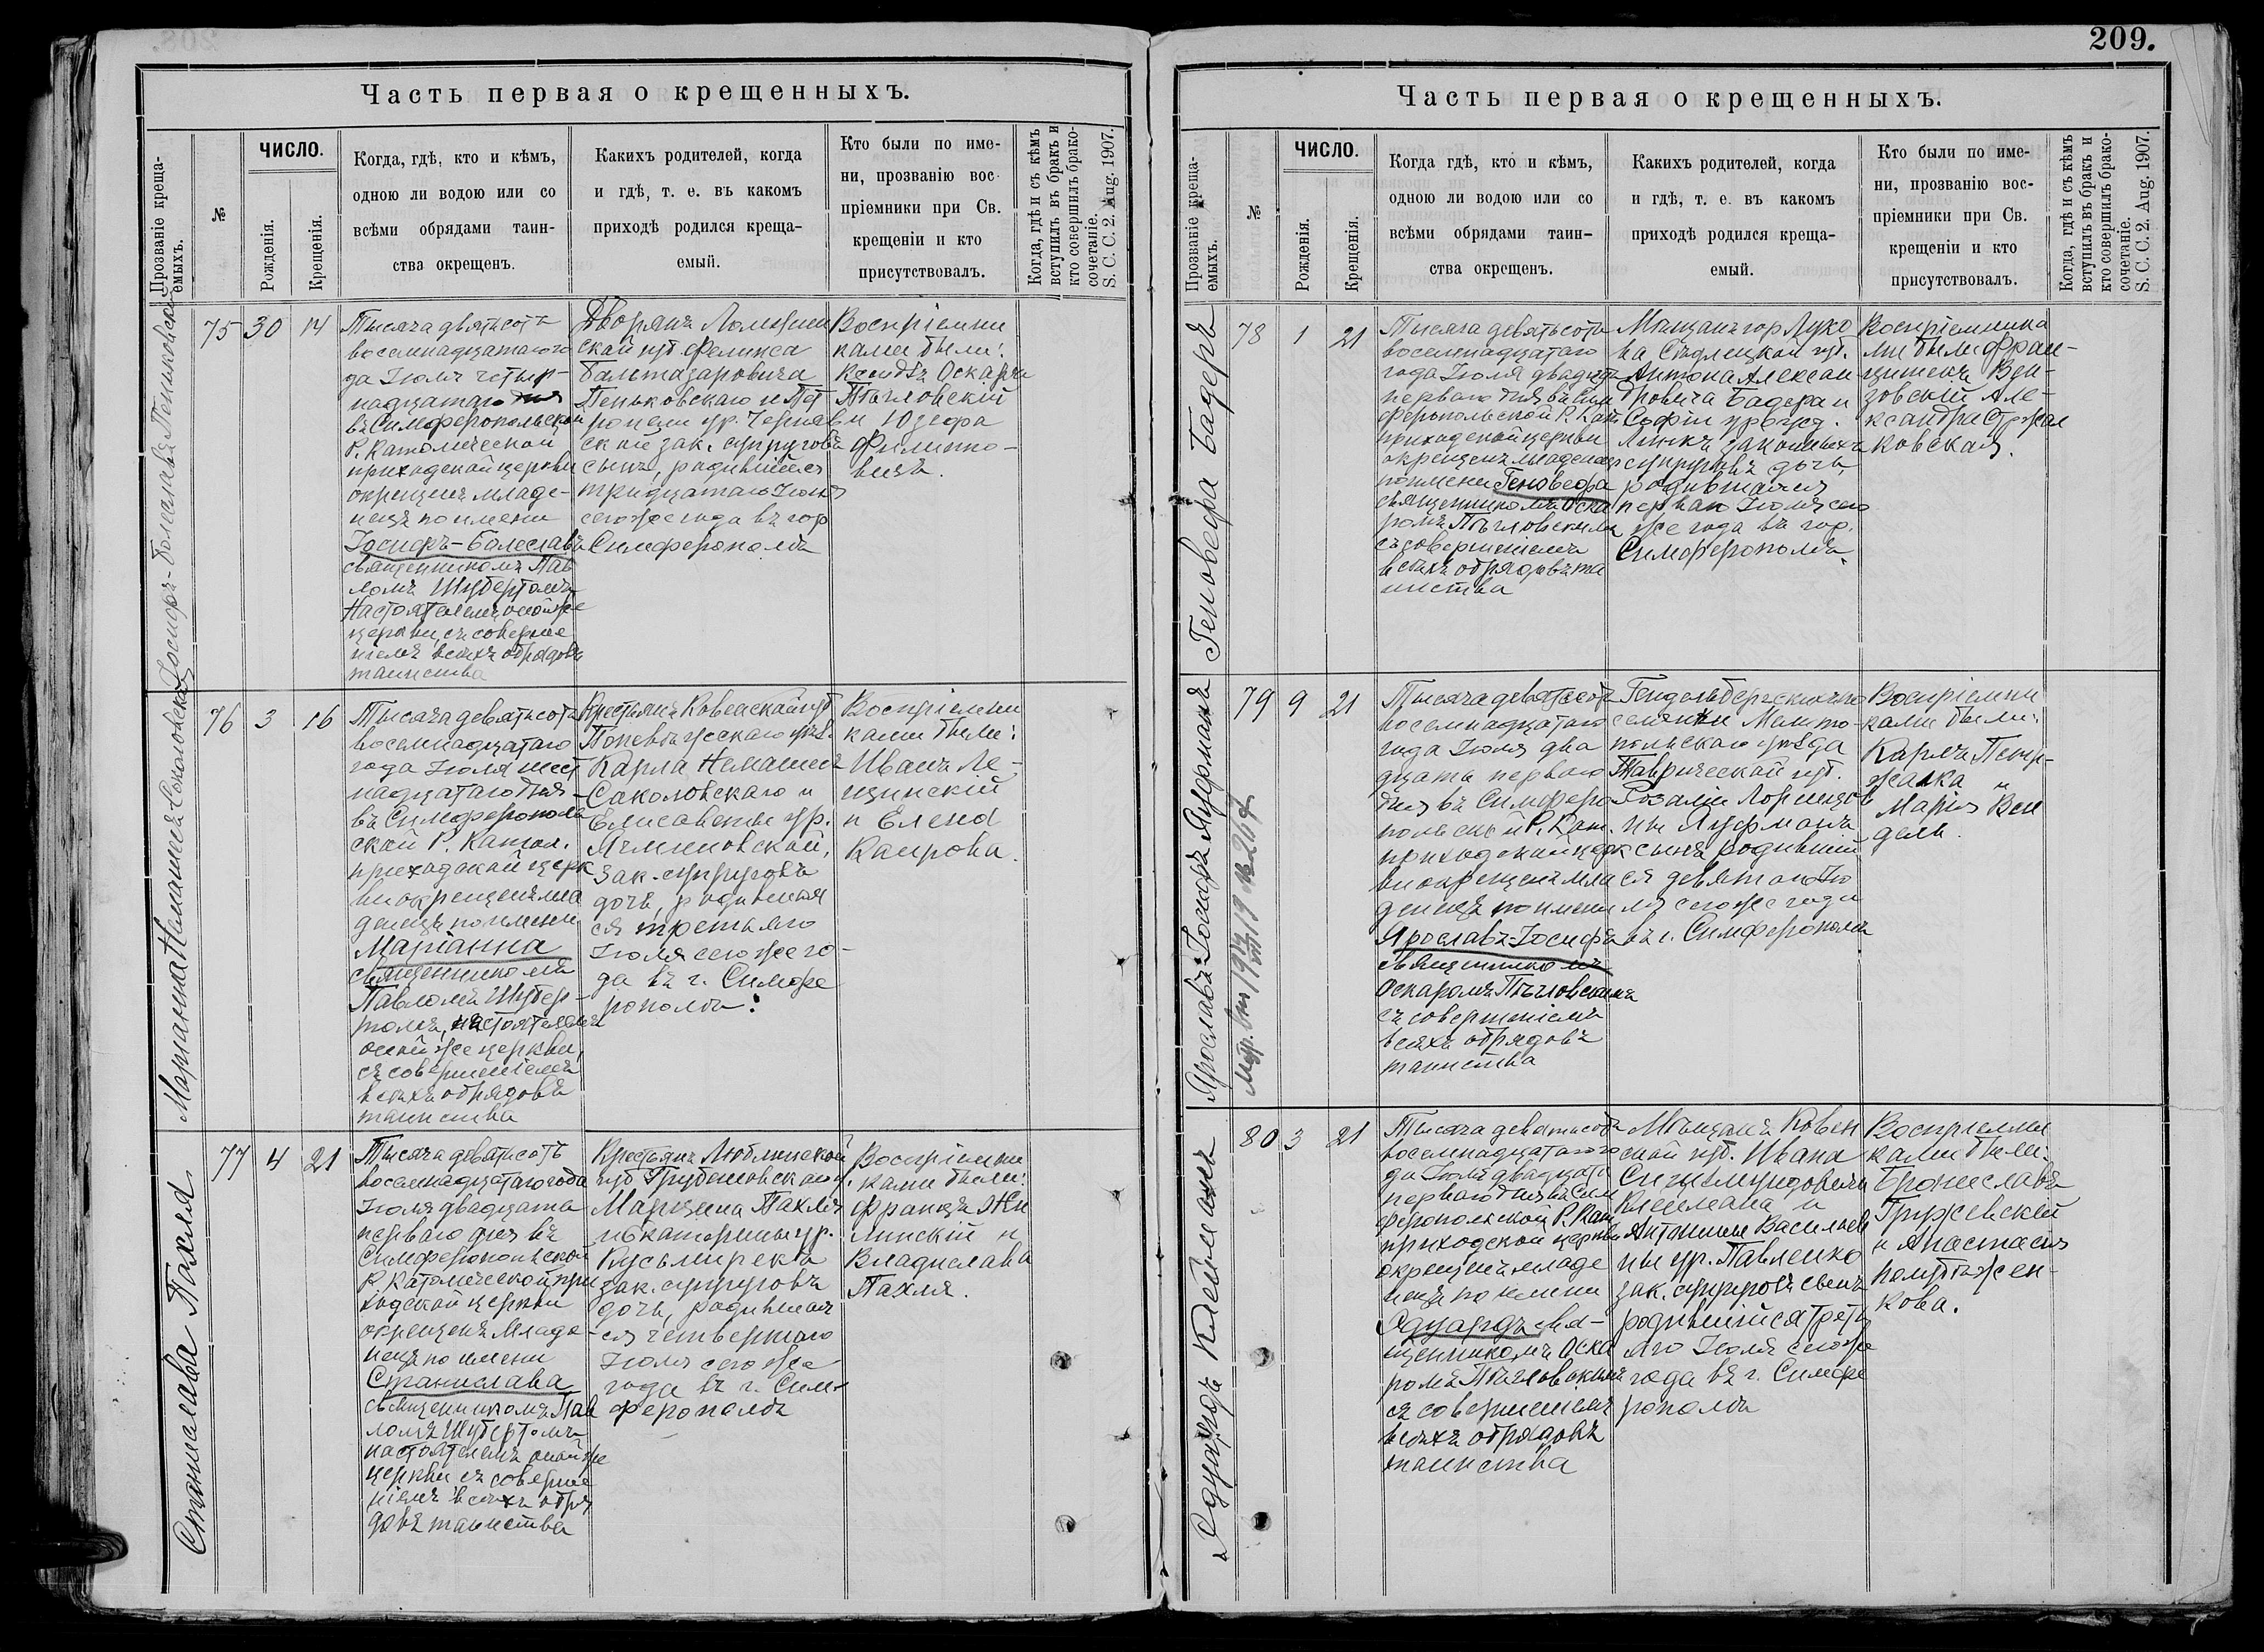 Часть первая о крещенныхъ.
Прозваніе креща-
емыхъ.
№
ЧИСЛО.
Рожденія.
Крещенія.
Когда, гдѣ, кто и кѣмъ,
одною ли водою или со
всѣми обрядами таин-
ства окрещенъ.
Какихъ родителей, когда
и гдѣ, т. е. въ какомъ
приходѣ родился креща-
емый.
Кто были по име-
ни, прозванію вос-
пріемники при Св.
крещеніи и кто
присутствовалъ.
Когда, гдѣ и съ кѣмъ
вступилъ въ бракъ и
кто совершилъ брако-
сочетаніе.
S. C. C. 2. Aug. 1907.
Іосифъ-Болеславъ Пеньковскій
75
30
14
Тысяча девятьсотъ
восемнадцатаго го
да Іюля четыр-
надцатаго дня
въ Симферопольской
Р. Католической
приходской церкви
окрещенъ младе-
нецъ по имени
Іосифъ-Балеславъ
священникомъ Пав
ломъ Шубертомъ
Настоятелемъ оной же
церкви, съ соверше
ніемъ всѣхъ обрядовъ
таинства
Дворянъ Ломжин
ской губ. Феликса
Бальтазаровича
Пеньковскаго и Пет
ронели ур. Черняв
ской зак. супруговъ
сынъ, родившійся
тридцатаго Іюня
сего же года въ гор
Симферополѣ
Воспріемни
ками были:
Ксендзъ Оскаръ
Пѣгловскій
и Юзефа
Филипо-
вичъ.
Марианна Немашева-Соколовская
76
3
16
Тысяча девятьсотъ
восемнадцатаго
года Іюля шест
надцатаго дня
въ Симферополь
ской Р. Катол.
приходской церк
ви окрещенъ мла
денецъ по имени
Маріанна
священникомъ
Павломъ Шубер-
томъ, настоятелемъ
оной же церкви,
съ совершеніемъ
всѣхъ обрядовъ
таинства
Крестьянъ Ковенской губ
Поневѣжскаго уѣз.
Карла Немашев
Соколовскаго и
Елисаветы ур.
зак. супруговъ
дочь, родившая
ся третьяго
Іюля сего же го-
да въ г. Симфе
рополѣ.
Воспріемни
ками были:
Иванъ Ле-
щинскій
и Елена
Каирова.
Станислава Пахля
77
4
21
Тысяча девятьсотъ
восемнадцатаго года
Іюля двадцать
перваго дня въ
Симферопольской
Р. Католической при
ходской церкви
окрещенъ младе-
нецъ по имени
Станислава
священникомъ Пав
ломъ Шубертомъ
настоятелемъ оной же
церкви съ соверше
ніемъ всѣхъ обря
довъ таинства
Крестьянъ Люблинской
губ Грубешовскаго у.
Марцина Пахля
и Екатерины ур.
Кусьмирекъ
зак. супруговъ
дочь, родившая
ся четвертаго
Іюля сего же
года въ г. Сим-
ферополѣ
Воспріемни
ками были:
Францъ Же
линскій и
Владислава
Пахля.
209.
Часть первая о крещенныхъ.
Прозваніе креща-
емыхъ.
№
ЧИСЛО.
Рожденія.
Крещенія.
Когда гдѣ, кто и кѣмъ,
одною ли водою или со
всѣми обрядами таин-
ства окрещенъ.
Какихъ родителей, когда
и гдѣ, т. е. въ какомъ
приходѣ родился креща-
емый.
Кто были по име-
ни, прозванію вос-
пріемники при Св.
крещеніи и кто
присутствовалъ.
Когда, гдѣ и съ кѣмъ
вступилъ въ бракъ и
кто совершилъ брако-
сочетаніе.
S. C. C. 2. Aug. 1907.
Геновефа Бадера
78
1
21
Тысяча девятьсотъ
восемнадцатаго
года Іюля двадцать
перваго дня въ Сим
феропольской Р. Кат
приходской церкви
окрещенъ младенецъ
по имени Геновефа
священникомъ Оска
ромъ Пѣгловскимъ
съ совершеніемъ
всѣхъ обрядовъ та
инства
Мѣщанъ гор Луко
ва Сѣдлецкой губ.
Антона Алексан
дровича Бадера и
Софіи урожд.
Линкъ законныхъ
супруговъ дочь,
родившаяся
перваго Іюля сего
же года въ гор.
Симферополѣ.
Воспріемника
ми были Фран-
цишекъ Вен-
зовскій Але-
ксандра Стржал
ковская.
Ярославъ-Іосифъ Яуфманъ
79
9
21
Тысяча девятьсотъ
восемнадцатаго
года Іюля два
дцать перваго
дня въ Симферо
польской Р. Кат.
приходской церк
ви окрещенъ мла
денецъ по имени
Ярославъ-Іосифъ
священникомъ
Оскаромъ Пѣгловскимъ
съ совершеніемъ
всѣхъ обрядовъ
таинства
селянки Мелито-
польскаго уѣзда
Таврической губ.
Розаліи Лоренцов
ны Яуфманъ
сынъ родившій
ся девятаго Ію
ля сего же года
въ г. Симферополѣ
Воспріемни
ками были:
Карлъ Петр-
жалка и
Марія Вен
дель.
Эдуардъ Клейманъ
80
3
21
Тысяча девятьсотъ
восемнадцатаго го
да Іюля двадцать
перваго дня въ Сим
феропольской Р. Кат
приходской церкви
окрещенъ младе
нецъ по имени
Эдуардъ свя-
щенникомъ Оска
ромъ Пѣгловскимъ
съ совершеніемъ
всѣхъ обрядовъ
таинства
Мѣщанъ Ковен
ской губ. Ивана
Сигизмундовича
Клеймана и
Антонины Васильев
ны ур. Павленко
зак. супруговъ сынъ
родившійся треть
яго Іюля сего же
года въ г. Симфе
рополѣ
Воспріемни
ками были:
Брониславъ
Гружевскій
и Анастасія
Голубжен-
кова.